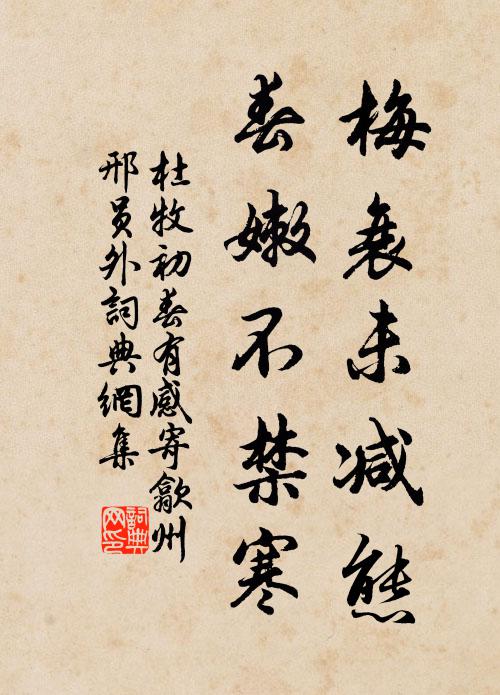 梅衰未减态
春嫩不禁寒
杜牧初春有感寄歙州
邢员外詞典網集
詞典网印